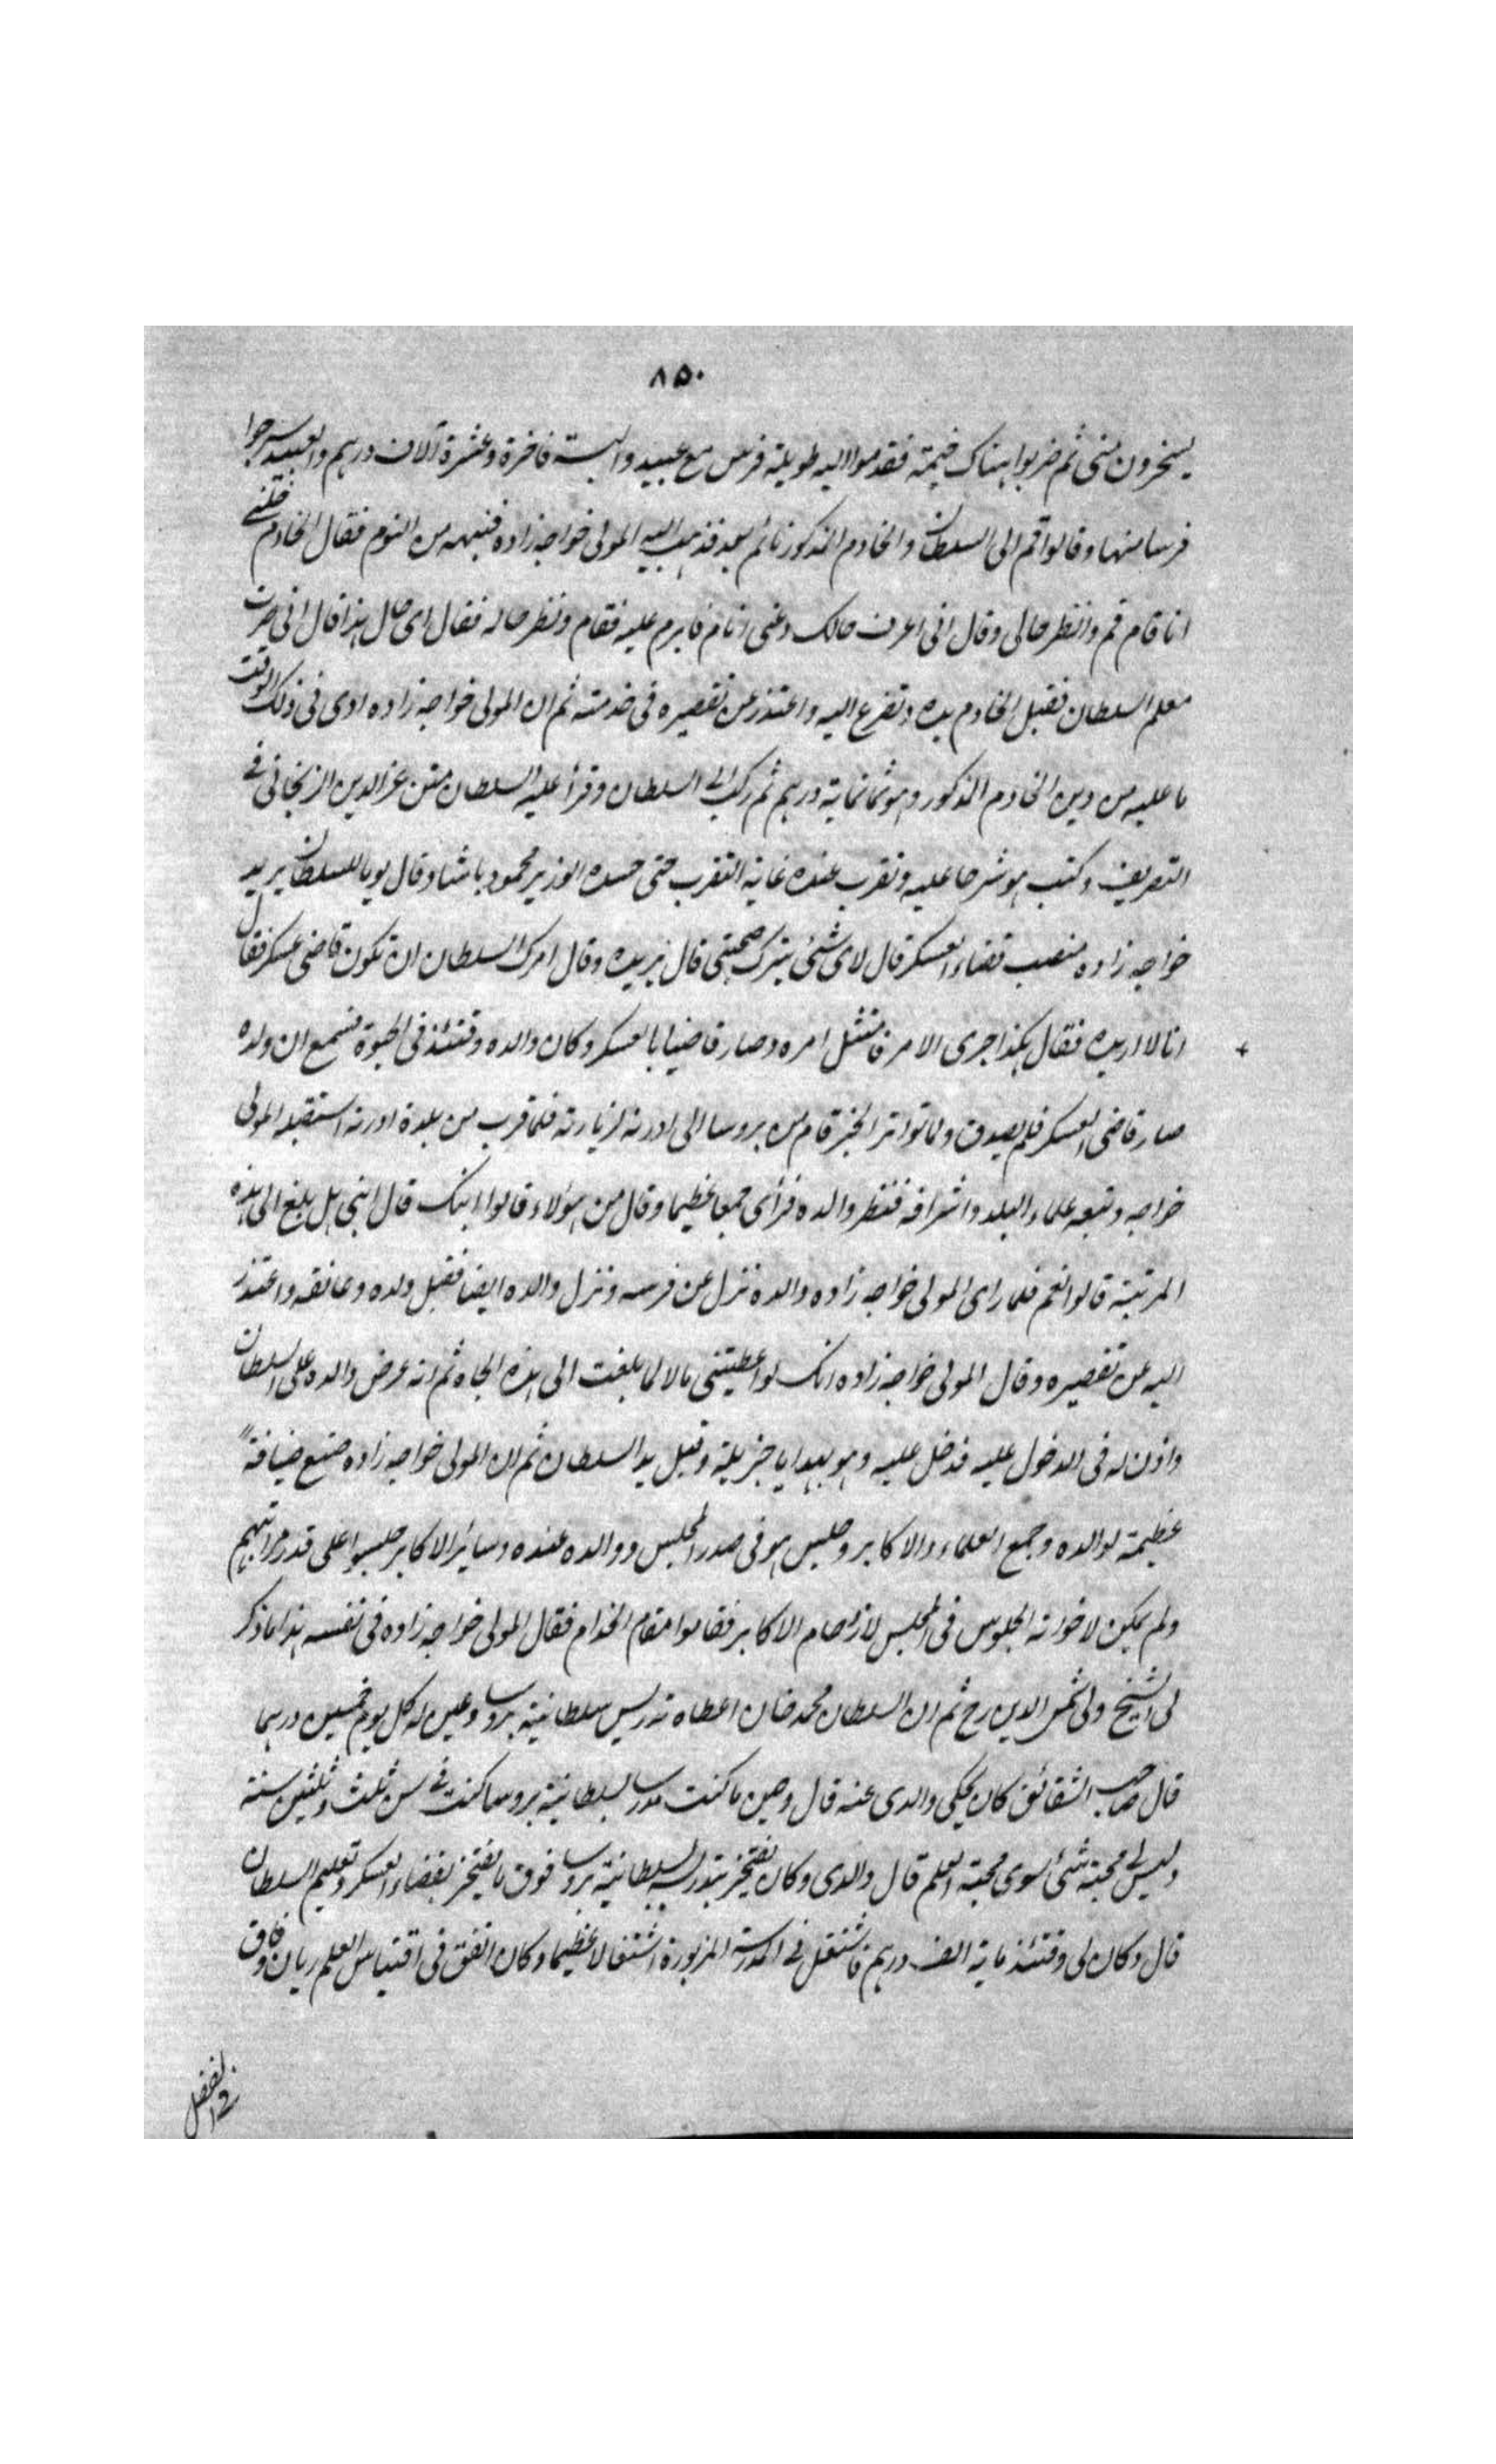 ٨٥٠
يسخرون منى ثم ضربوا هناك خيمة فقدموا اليه طويلة فرس مع عبيد والبسة فاخرة وعشرة آلاف درهم والعبيد اسرجوا
فرسا منها وقالوا قم الى السلطان والخادم المذكور نائم بعد فذهب اليه المولى خواجه زاده فنبهه من النوم فقال الخادم خلنى
انام قال قم وانظر حالى وقال انى اعرف حالك دعنى انام فابرم عليه فقام ونظر حاله فقال اى حال هذا قال انى صرت
معلم السلطان فقبل الخادم يده وتضرع اليه واعتذر عن تقصيره فى خدمته ثم ان المولى خواجه زاده ادى فى ذلك الوقت
ما عليه من دين الخادم المذكور وهو ثمانماية درهم ثم ركب الى السلطان وقرأ عليه السلطان متن عز الدين الزنجانى فى
التصريف وكتب هو شرحا عليه وتقرب عنده غاية التقرب حتى حسده الوزير محمود باشا وقال يوما للسلطان يريد
خواجه زاده منصب قضاء العسكر قال لاى شئ يترك صحبتى قال يريده وقال امرك السلطان ان تكون قاضى عسكر فقال
انا لا اريده فقال هكذا جرى الامر فامتثل امره وصار قاضيا بالعسكر وكان والده وقتئذ فى الحيوة فسمع ان ولده
صار قاضى العسكر فلم يصدق ولما تواتر الخبر قام من بروسا الى ادرنه لزيارته فلما قرب من بلدة ادرنه استقبله المولى
خواجه وتبعه علماء البلد واشرافه فنظر والده فرأى جمعا عظيما وقال من هؤلاء قالوا ابنك قال ابنى هل بلغ الى هذه
المرتبة قالوا نعم فلما راى المولى خواجه زاده والده نزل عن فرسه ونزل والده ايضا فقبل ولده وعانقه واعتذر
اليه عن تقصيره وقال المولى خواجه زاده انك لو اعطيتنى مالا لما بلغت الى هذه الجاه ثم انه عرض والده على السلطان
واذن له فى الدخول عليه فدخل عليه وهو بهدايا جزيلة وقبل يد السلطان ثم ان المولى خواجه زاده صنع ضيافةً
عظيمة لوالده وجمع العلماء والاكابر وجلس هو فى صدر المجلس ووالده عنده وسائر الاكابر جلسوا على قدر مراتبهم
ولم يمكن لاخوانه الجلوس فى المجلس لازدحام الاكابر فقاموا مقام الخدام فقال المولى خواجه زاده فى نفسه هذا ما ذكر
لى الشيخ ولى شمس الدين رح ثم ان السلطان محمد خان اعطاه تدريس سلطانية بروسا وعين له كل يوم خمسين درهما
قال صاحب الشقائق كان يحكى والدى عنه قال وحين ما كنت مدرسا بسلطانية بروسا كنت فى سن ثلث وثلثين سنة
وليس لى محبة شئ سوى محبة العلم قال والدى وكان يفتخر بتدريس السلطانية بروسا فوق ما يفتخر بقضاء العسكر وتعليم السلطان
قال وكان لى وقتئذ ماية الف درهم فاشتغل فى المدرسة المزبورة اشتغالا عظيما وكان انفق فى اقتباس العلم ريان وفاق